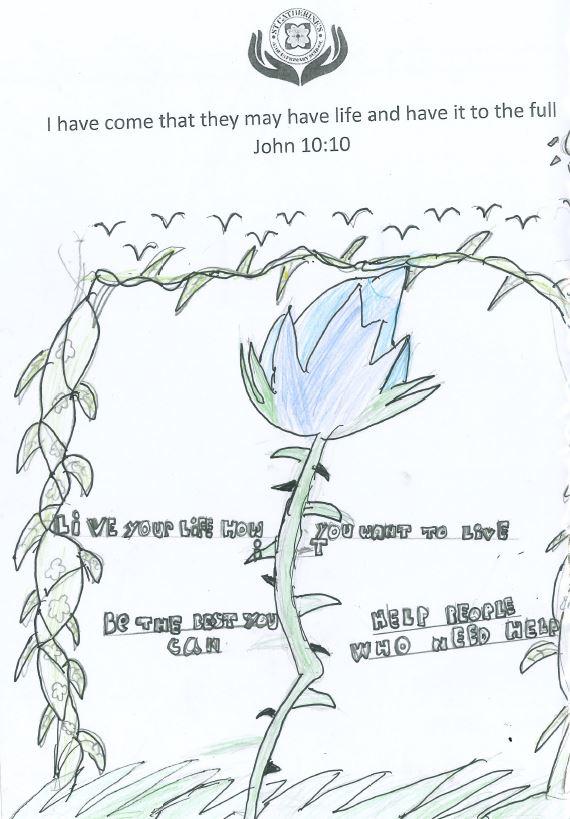 ST CATHERINE'S
PRIMARY SCHOOL
I have come that they may have life and have it to the full
John 10:10
LiVE YOUR LiFE HOW YOU WANT TO LiVE
iT
BE THE BEST YOU
CAN
HELP PEOPLE
WHO NEED HELP